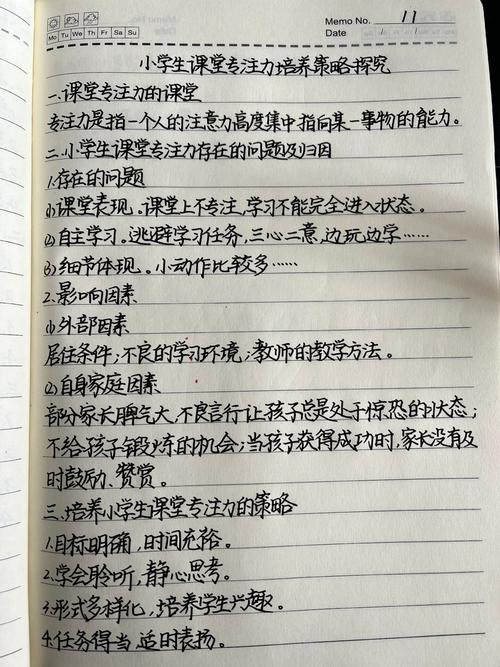 Memo No. 11
Mo Tu We Th Fr Sa Su
Date
小学生课堂专注力培养策略探究
一.课堂专注力的课堂
专注力是指一个人的注意力高度集中指向某一事物的能力。
二.小学生课堂专注力存在的问题及归因
1.存在的问题
(1)课堂表现。课堂上不专注,学习不能完全进入状态。
(2)自主学习。逃避学习任务,三心二意,边玩边学……
(3)细节体现。小动作比较多……
2.影响因素
(1)外部因素
居住条件;不良的学习环境;教师的教学方法。
(2)自身家庭因素
部分家长脾气大,不良言行让孩子总是处于惊恐的状态;
不给孩子锻炼的机会;当孩子获得成功时,家长没有及
时鼓励、赞赏。
三.培养小学生课堂专注力的策略
1.目标明确,时间充裕。
2.学会聆听,静心思考。
3.形式多样化,培养学生兴趣。
4.任务得当,适时表扬。